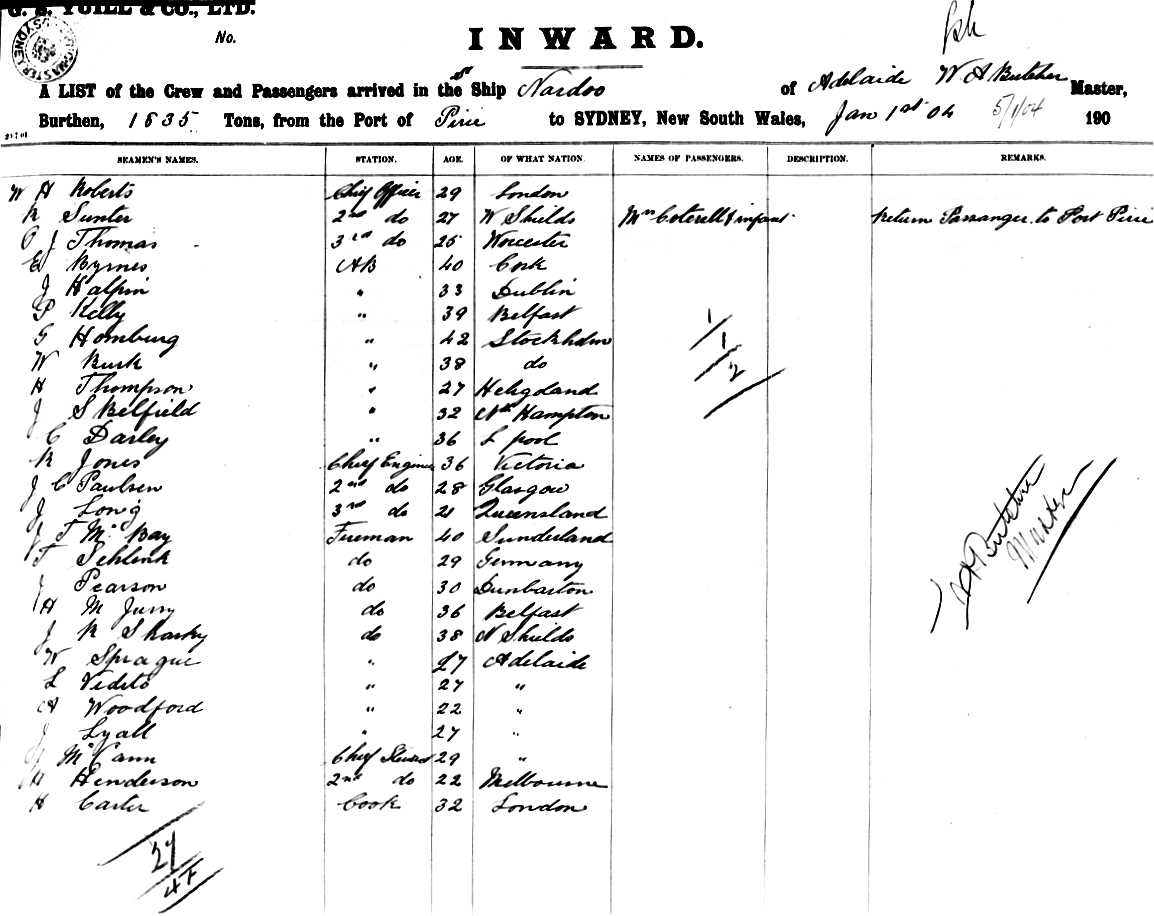 G. S. YUILL & CO., LTD.
No.
INWARD.
A LIST of the Crew and Passengers arrived in the Ship Nardoo of Adelaide W A Butcher Master,
Burthen, 1835 Tons, from the Port of Pirie to SYDNEY, New South Wales, Jan 1st 04 5/1/04 190
21701
SEAMEN'S NAMES. STATION. AGE. OF WHAT NATION. NAMES OF PASSENGERS. DESCRIPTION. REMARKS.
W H Roberts Chief Officer 29 London
R Sunter 2nd do 27 W Shields Mrs Coterell & infant Return Passanger to Port Pirie
C J Thomas 3rd do 25 Worcester
E Byrnes AB 40 Cork
J Halpin " 33 Dublin
P Kelly " 39 Belfast
G Homburg " 42 Stockholm
W Burk " 38 do
H Thompson " 27 Heligoland
J S Belfield " 32 Nth Hampton
C Darley " 36 L pool
R Jones Chief Engineer 36 Victoria
J C Paulsen 2nd do 28 Glasgow
J Long 3rd do 21 Queensland
T Mc Bay Fireman 40 Sunderland
F Schlink do 29 Germany
J Pearson do 30 Dunbarton
H M Jurry do 36 Belfast
J R Sharky do 38 N Shields
W Sprague " 27 Adelaide
L Videto " 27 "
A Woodford " 22 "
J Lyall " 27 "
McCann Chief Steward 29 "
H Henderson 2nd do 22 Melbourne
H Carter Cook 32 London
1/1/2
W A Butcher
Master
27